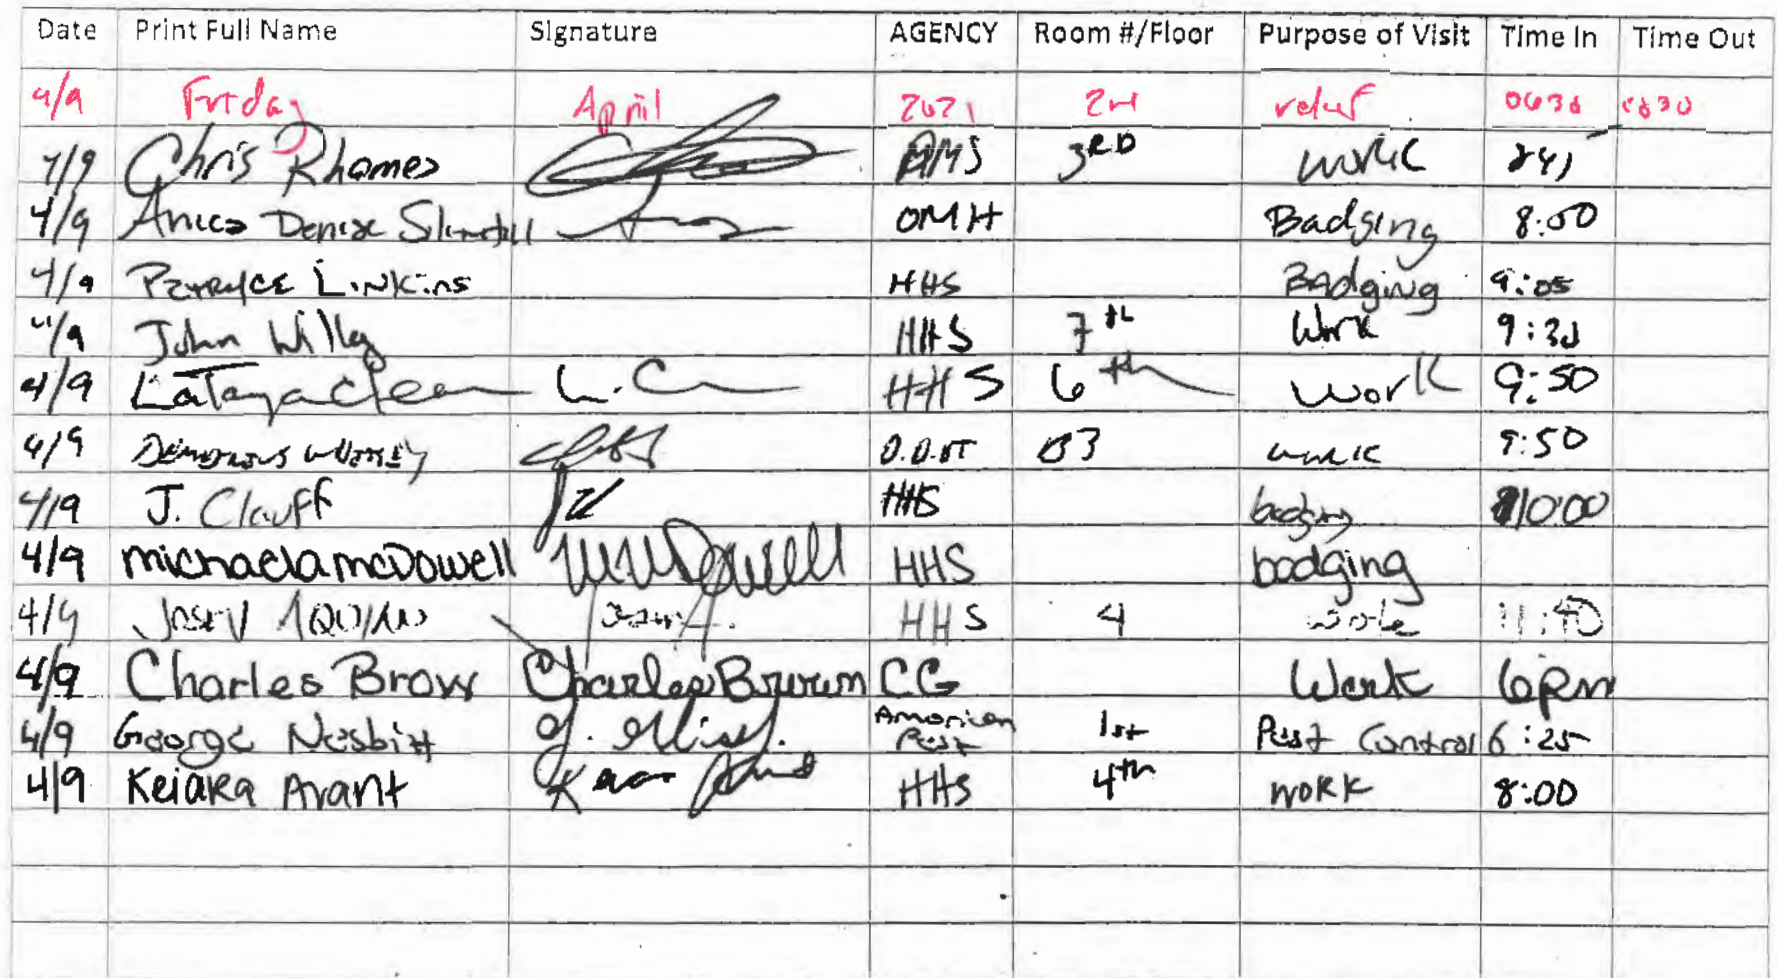 Date Print Full Name Signature AGENCY Room #/Floor Purpose of Visit Time In Time Out
4/9 Friday April 2021 2nd 0630
4/9 Chris Rhames 3RD work 841
4/9 Denise OMH Badging 8:50
4/9 Linkins HHS BAdging 9:05
4/9 John Willey HHS 7th Work 9:30
4/9 LaTanya Clean L.C HHS 6th work 9:50
4/9 D.O.IT B3 work 9:50
4/9 J. Clauff HHS badging 10:00
4/9 michaela mcDowell HHS badging
4/9 HHS 4 work 11:40
4/9 Charles Brown Charles Brown CG Work 6pm
4/9 George Nesbitt American Pest 1st Pest Control 6:25
4/9 Keiara Avant HHS 4th work 8:00